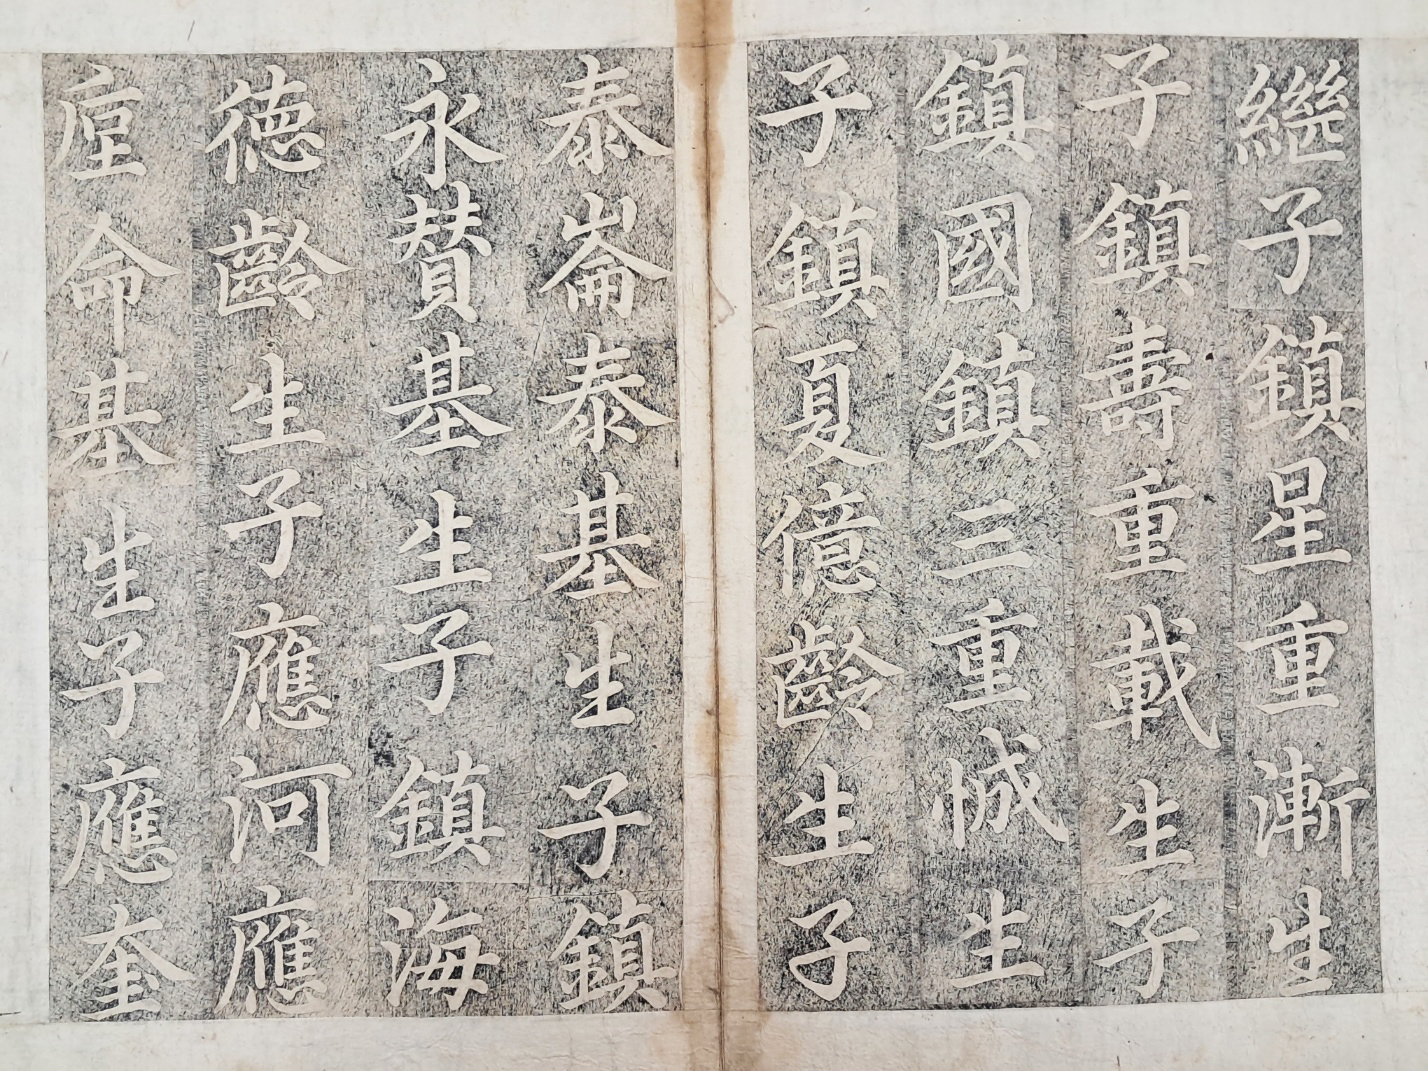 繼子鎮星重漸生
子鎮壽重載生子
鎮國鎮三重㦂生
子鎮夏億齡生子
泰崙泰基生子鎮
永賛基生子鎮海
德齡生子應河應
垕命基生子應奎